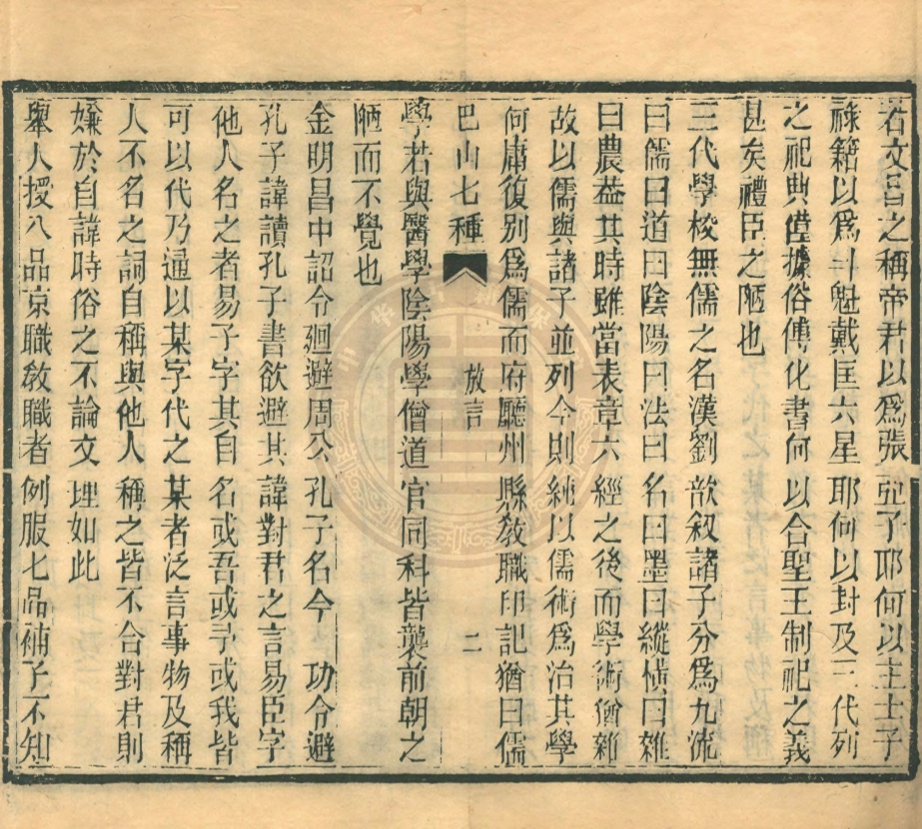 若文昌之稱帝君以爲張亞子耶何以主士子
祿籍以爲斗魁戴匡六星耶何以封及三代列
之祀典僅據俗傳化書何以合聖王制祀之義
甚矣禮臣之陋也
三代學校無儒之名漢劉歆叙諸子分爲九流
曰儒曰道曰陰陽曰法曰名曰墨曰縱橫曰雜
曰農葢其時雖當表章六經之後而學術猶雜
故以儒與諸子並列今則純以儒術爲治其學
何庸復別爲儒而府廳州縣敎職印記猶曰儒
巴山七種 放言 二
學若與醫學陰陽學僧道官同科皆襲前朝之
陋而不覺也
金明昌中詔令廻避周公孔子名今功令避
孔子諱讀孔子書欲避其諱對君之言易臣字
他人名之者易子字其自名或吾或予或我皆
可以代乃通以某字代之某者泛言事物及稱
人不名之詞自稱與他人稱之皆不合對君則
嫌於自諱時俗之不論文理如此
舉人授八品京職敎職者例服七品補子不知